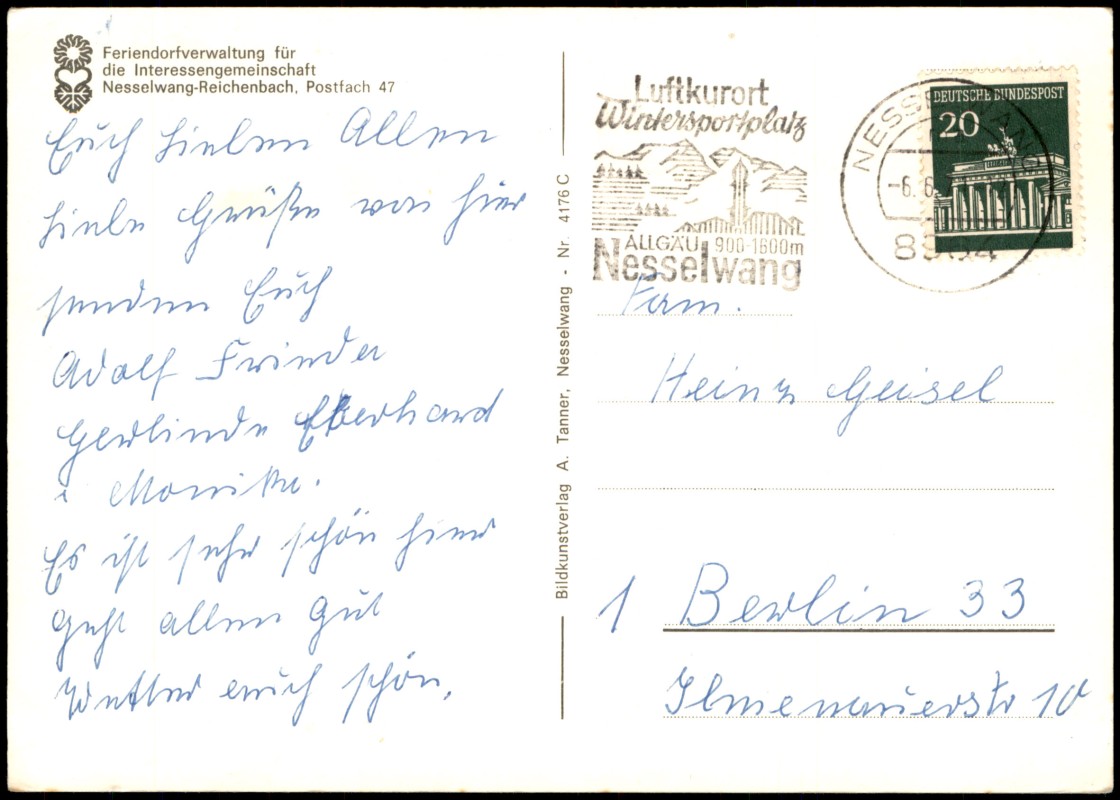 Feriendorfverwaltung für
die Interessengemeinschaft
Nesselwang-Reichenbach, Postfach 47
Euch Lieben Allen
Liebe Grüße von hier
senden Euch
Adolf Frieda
Gerlinde Eberhard
u Monika.
Es ist sehr schön hier
Geht allen Gut
Wetter auch schön.
Bildkunstverlag A. Tanner, Nesselwang - Nr. 4176 C
Luftkurort
Wintersportplatz
ALLGÄU 900-1600m
Nesselwang
NESSELWANG
-6.6.
DEUTSCHE BUNDESPOST
20
Fam.
Heinz Geisel
1 Berlin 33
Ilmenauerstr 10